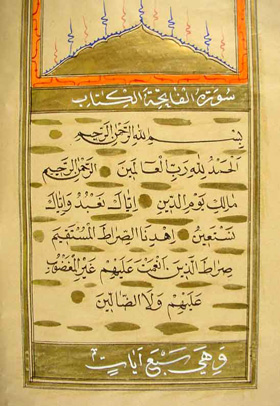 سورة الفاتحة الكتاب
بسم الله الرحمن الرحيم
الحمد لله رب العالمين الرحمن الرحيم
مالك يوم الدين إياك نعبد وإياك
نستعين اهدنا الصراط المستقيم
صراط الذين أنعمت عليهم غير المغضوب
عليهم ولا الضالين
وهي سبع آيات